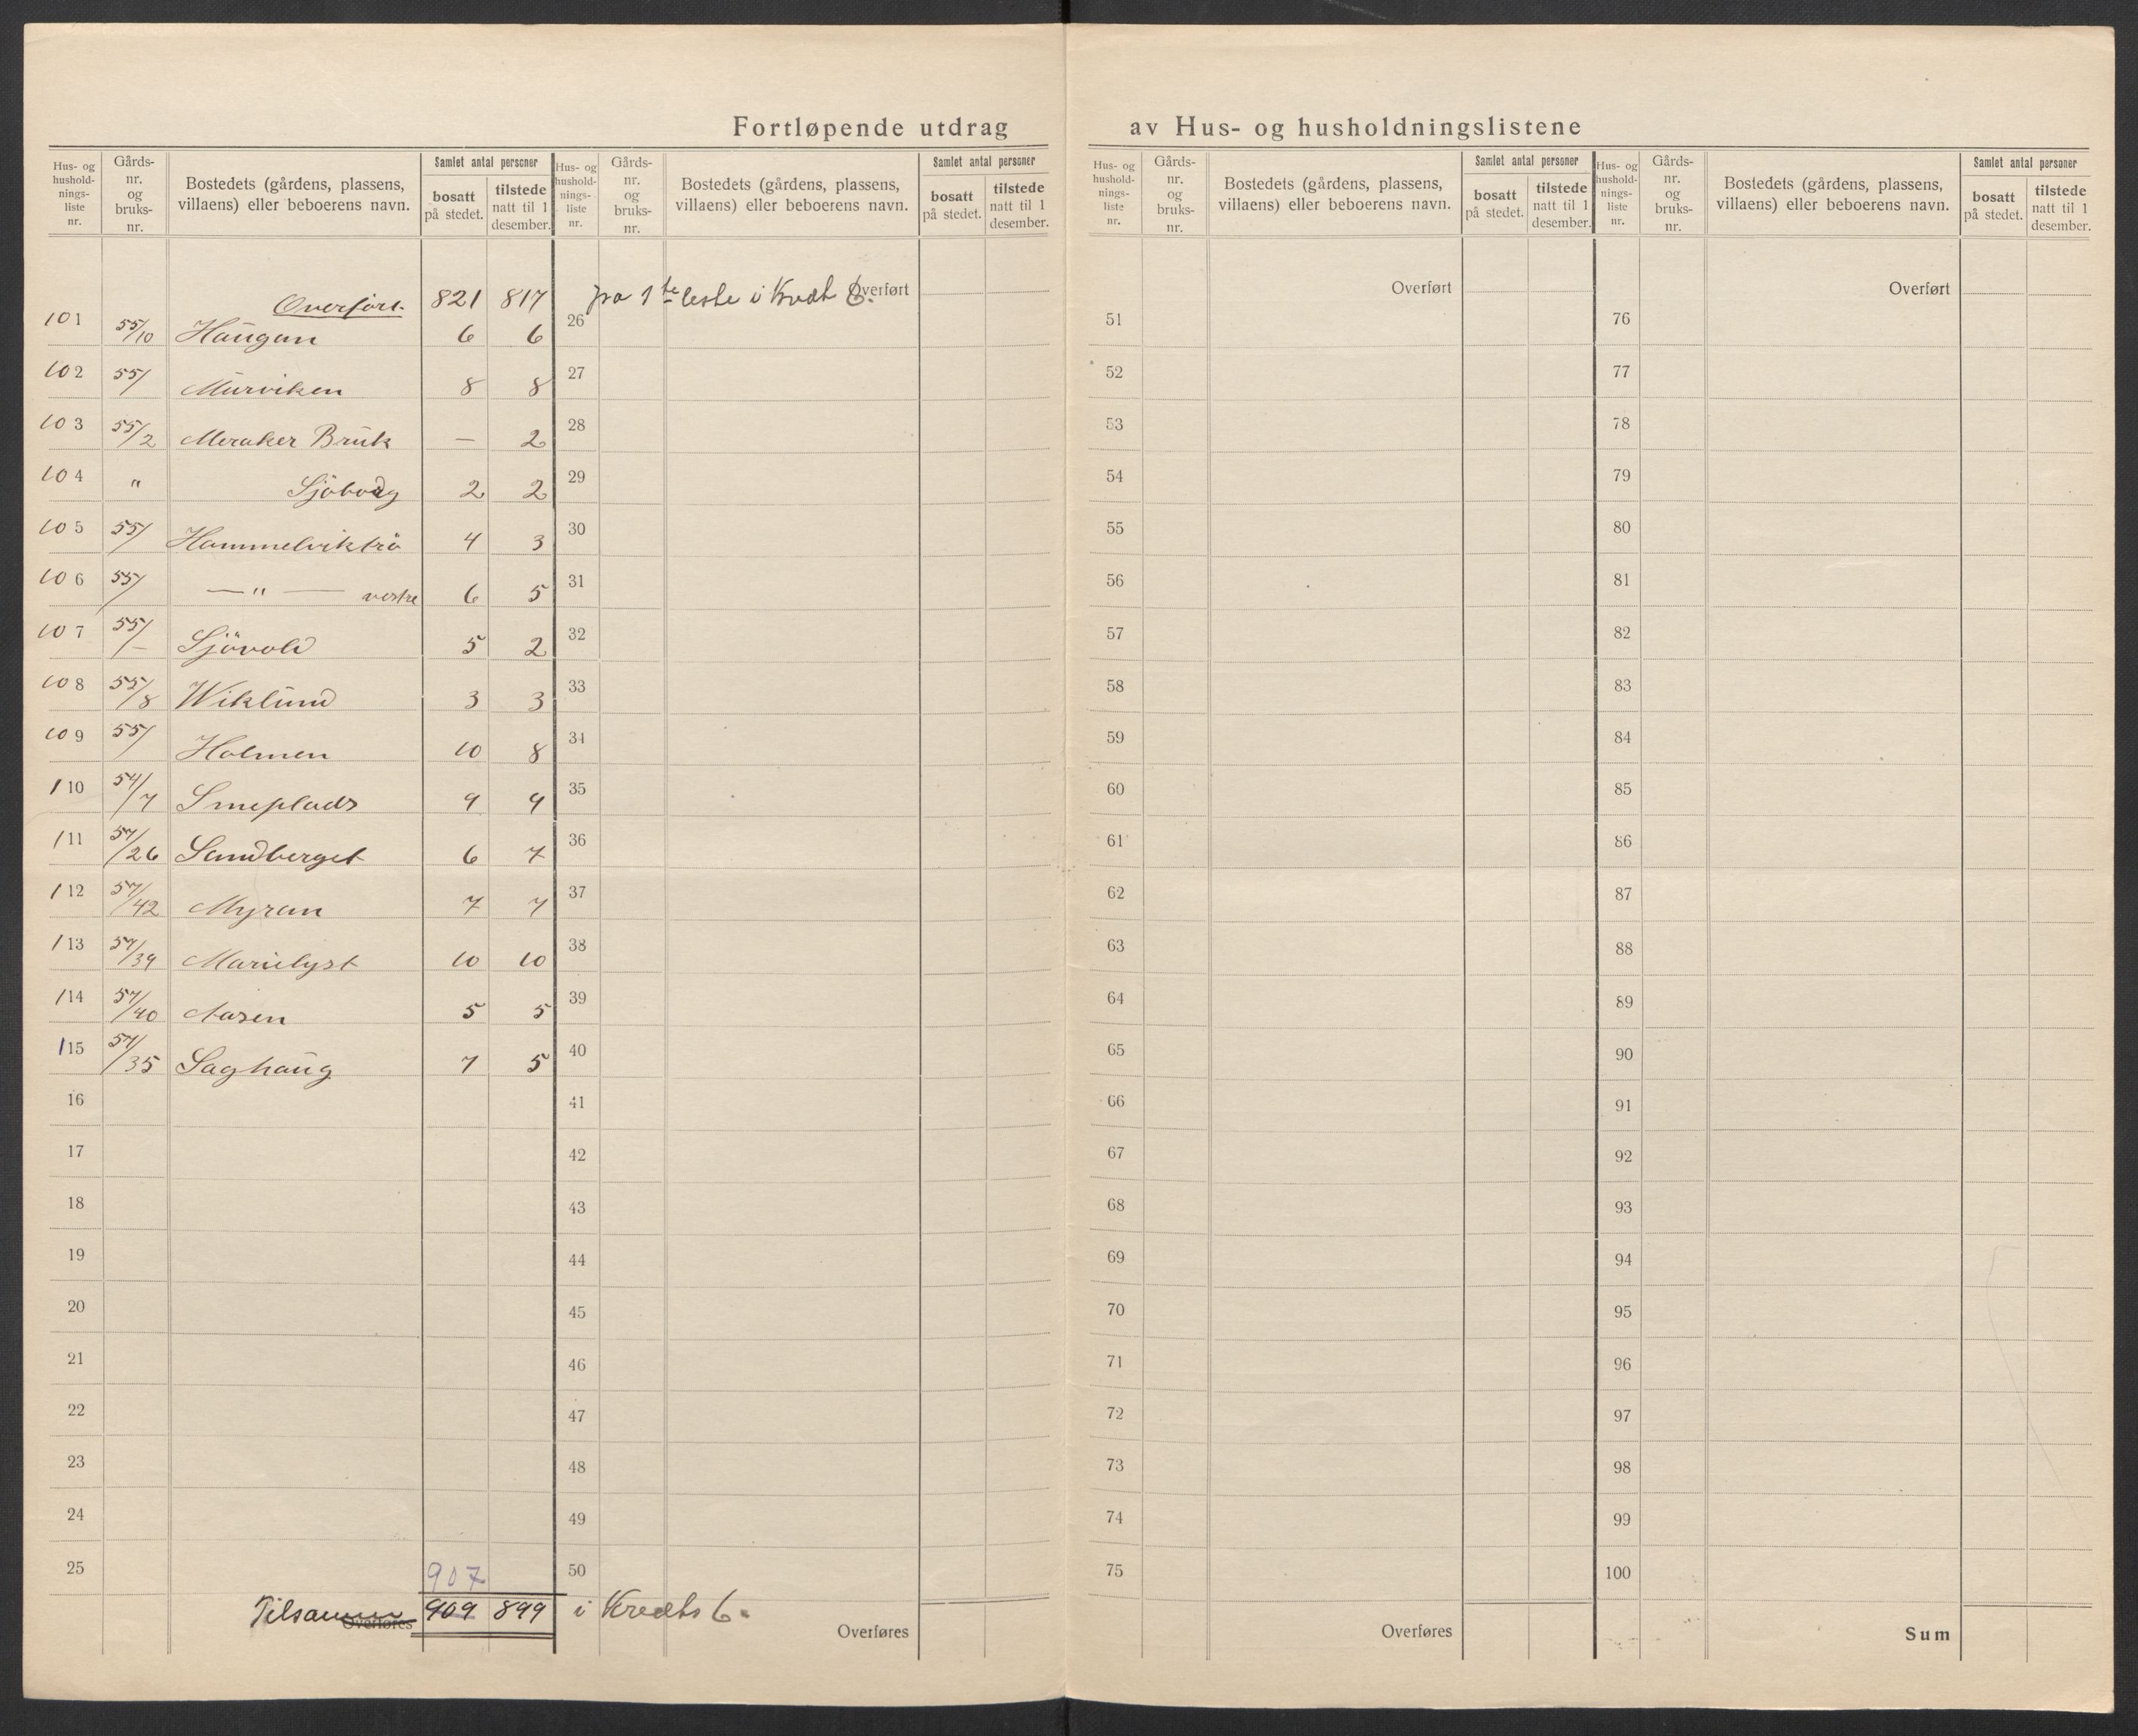 Fortløpende utdrag av Hus- og husholdningslistene
Hus- og husholdnings-liste nr. | Gårds-nr. og bruks-nr. | Bostedets (gårdens, plassens, villaens) eller beboerens navn. | Samlet antal personer | bosatt på stedet. | tilstede natt til 1 desember.
Hus- og husholdnings-liste nr. | Gårds-nr. og bruks-nr. | Bostedets (gårdens, plassens, villaens) eller beboerens navn. | Samlet antal personer | bosatt på stedet. | tilstede natt til 1 desember.
Hus- og husholdnings-liste nr. | Gårds-nr. og bruks-nr. | Bostedets (gårdens, plassens, villaens) eller beboerens navn. | Samlet antal personer | bosatt på stedet. | tilstede natt til 1 desember.
Hus- og husholdnings-liste nr. | Gårds-nr. og bruks-nr. | Bostedets (gårdens, plassens, villaens) eller beboerens navn. | Samlet antal personer | bosatt på stedet. | tilstede natt til 1 desember.
Overført 821 817 fra 1te liste i Kreds 6. Overført Overført Overført
101 55/10 Haugan 6 6 26 51 76
102 55/ Murviken 8 8 27 52 77
103 55/2 Meraker Bruk — 2 28 53 78
104 " Sjöbodg 2 2 29 54 79
105 55/ Hommelviktrö 4 3 30 55 80
106 55/ — " — vestre 6 5 31 56 81
107 55/— Sjövold 5 2 32 57 82
108 55/8 Wiklund 3 3 33 58 83
109 55/ Holmen 10 8 34 59 84
110 54/7 Smeplads 9 9 35 60 85
111 57/26 Sandberget 6 7 36 61 86
112 57/42 Myran 7 7 37 62 87
113 57/39 Marielyst 10 10 38 63 88
114 57/40 Aasen 5 5 39 64 89
115 57/35 Saghaug 7 5 40 65 90
16 41 66 91
17 42 67 92
18 43 68 93
19 44 69 94
20 45 70 95
21 46 71 96
22 47 72 97
23 48 73 98
24 49 74 99
25 907 50 75 100
Tilsammen Overføres 909 899 i Kreds 6. Overføres Overføres Sum